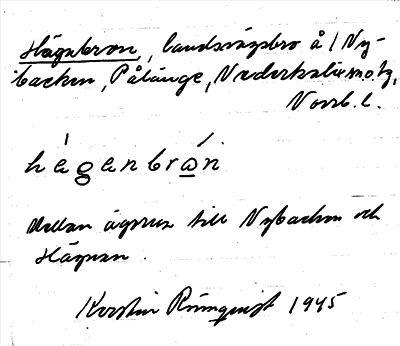 Hägnbron, landsvägsbro å / Ny-
backen, Pålänge, Nederkalix s:n o. tg,
Norrb. l.
hégenbrón
Mellan ägorna till Nybacken och
Hägnan.
Kerstin Rönnqvist 1945